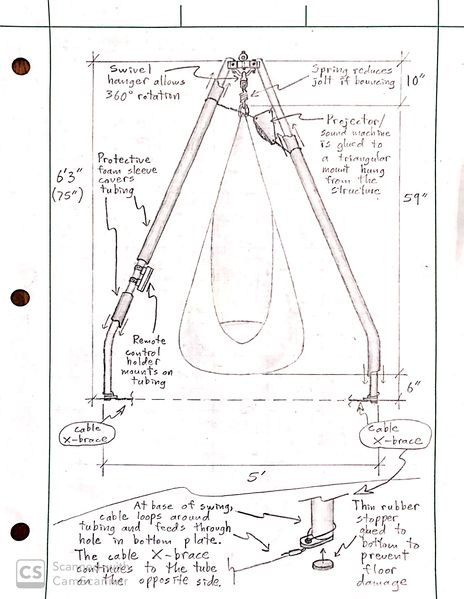 Swivel
hanger allows
360° rotation
Spring reduces
jolt if bouncing
10"
Projector/
sound machine
is glued to
a triangular
mount hung
from the
structure
6'3"
(75")
Protective
foam sleeve
covers
tubing
59"
Remote
control
holder
mounts on
tubing
6"
cable
X-brace
cable
X-brace
5'
At base of swing,
cable loops around
tubing and feeds through
hole in bottom plate.
The cable X-brace
continues to the tube
on the opposite side.
Thin rubber
stopper
glued to
bottom to
prevent
floor
damage
CS
Scanned with
CamScanner